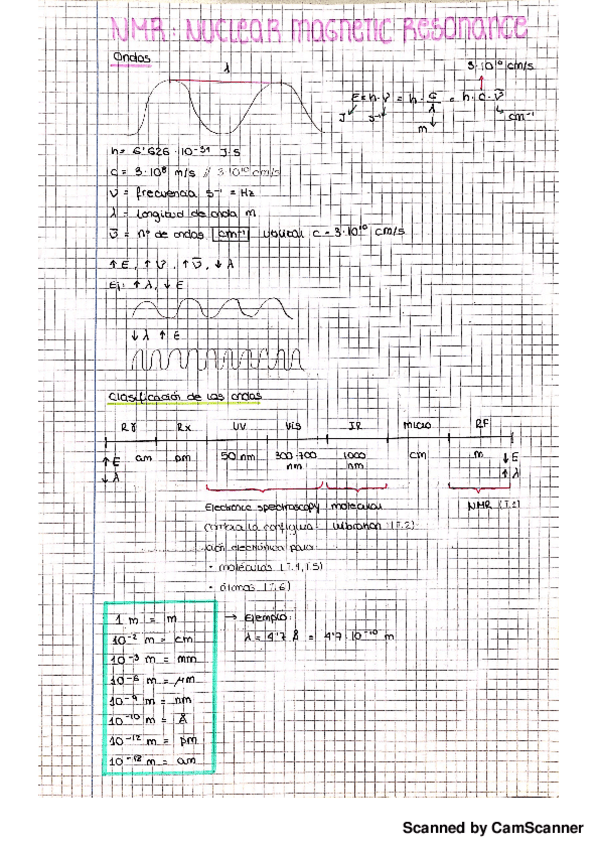 NMR: NUCLEAR MAGNETIC RESONANCE
Ondas
λ
3·10¹⁰ cm/s
E = h·ν = h · c/λ = h · c · ν̄
J s⁻¹ m cm⁻¹
h = 6'626 · 10⁻³⁴ J·s
c = 3·10⁸ m/s // 3·10¹⁰ cm/s
ν = frecuencia s⁻¹ = Hz
λ = longitud de onda m
ν̄ = nº de ondas cm⁻¹ c = 3·10¹⁰ cm/s
↑ E, ↑ ν, ↑ ν̄, ↓ λ
Ej: ↑ λ, ↓ E
↓ λ ↑ E
Clasificación de las ondas
Rγ Rx UV Vis IR micro RF
↑E am pm 50 nm 300-700 nm 1000 nm cm m ↓E
↓λ ↑λ
Electronic spectroscopy molecular NMR (T.2)
cambia la configura- vibration (T.2)
ción electrónica para:
· moléculas (T.4, T.5)
· átomos (T.6)
1 m = m → Ejemplo:
10⁻² m = cm λ = 4'7 Å = 4'7 · 10⁻¹⁰ m
10⁻³ m = mm
10⁻⁶ m = μm
10⁻⁹ m = nm
10⁻¹⁰ m = Å
10⁻¹² m = pm
10⁻¹⁸ m = am
Scanned by CamScanner